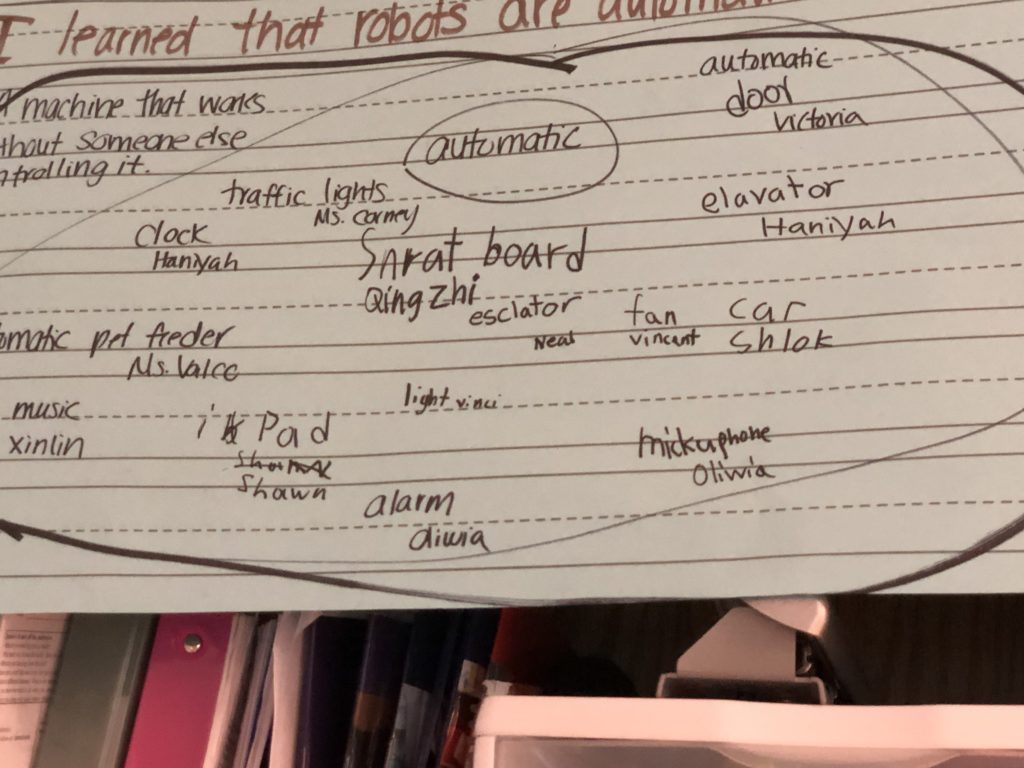 I learned that robots are automa
A machine that works
thout someone else
ntrolling it.
automatic
automatic
door
Victoria
traffic lights
Ms. Carney
elavator
Haniyah
Clock
Haniyah
Snrat board
Qingzhi
esclator
Neal
fan
vincent
car
Shlok
omatic pet feeder
Ms. Valce
music
xinlin
light vinci
i Pad
Shawn
mickuphone
Oliwia
alarm